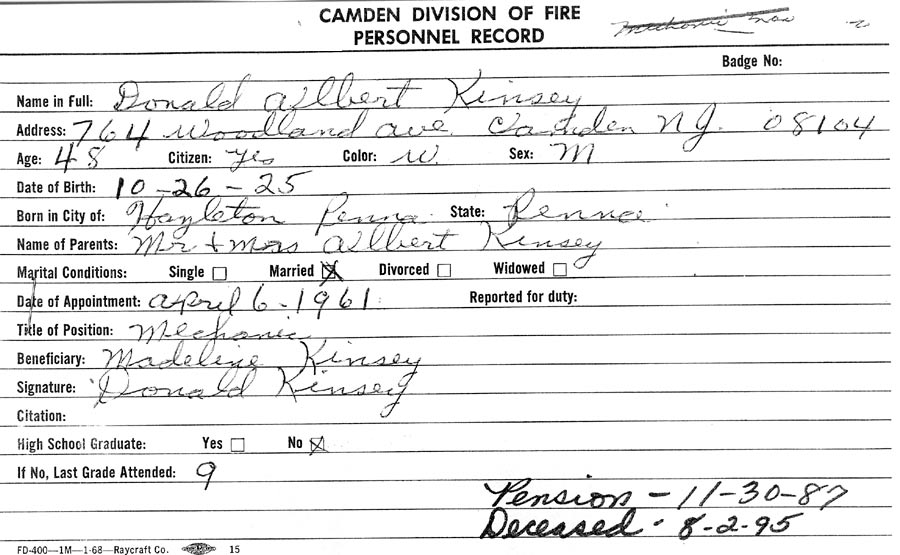 CAMDEN DIVISION OF FIRE
PERSONNEL RECORD
Badge No:
Name in Full: Donald Albert Kinsey
Address: 764 Woodland ave Camden N.J. 08104
Age: 48 Citizen: Yes Color: W. Sex: M
Date of Birth: 10-26-25
Born in City of: Hazleton Penna State: Penna
Name of Parents: Mr + Mrs Albert Kinsey
Marital Conditions: Single Married Divorced Widowed
Date of Appointment: April 6-1961 Reported for duty:
Title of Position: Mechanic
Beneficiary: Madeline Kinsey
Signature: Donald Kinsey
Citation:
High School Graduate: Yes No
If No, Last Grade Attended: 9
Pension - 11-30-87
Deceased - 8-2-95
FD-400—1M—1-68—Raycraft Co. 15